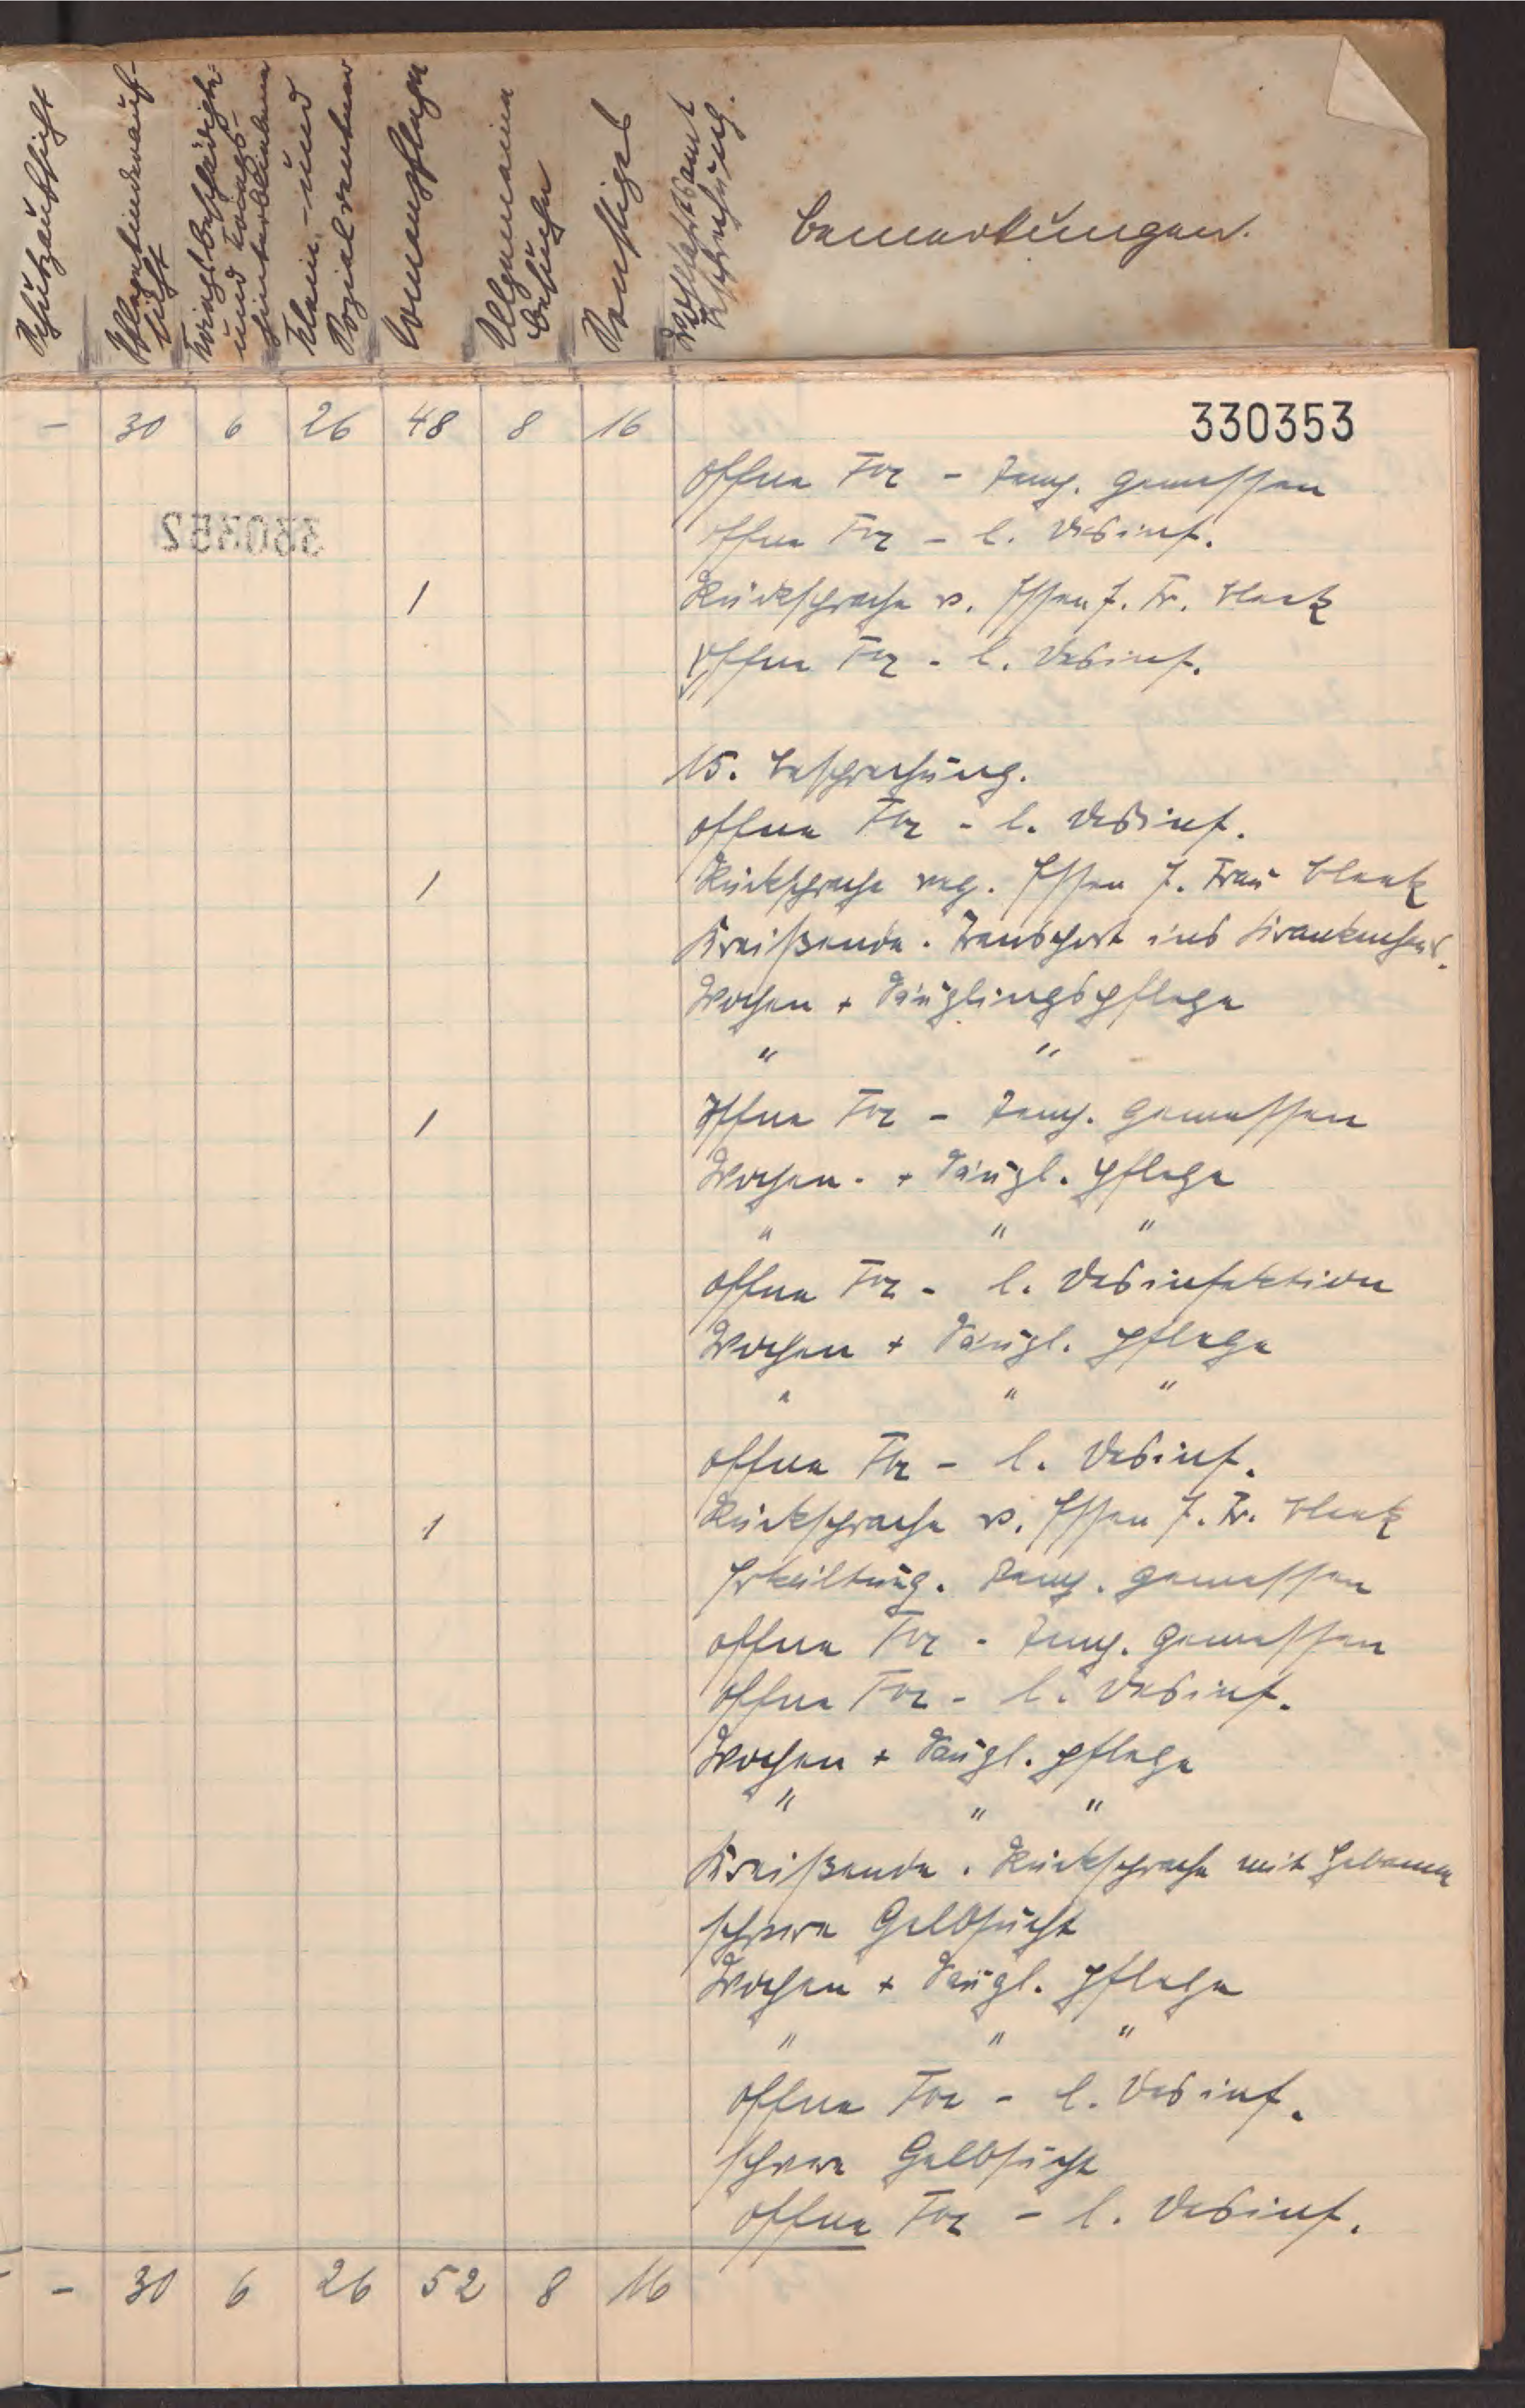 Schutzaufsicht
Pflegekinderauf-
sicht
Kriegsbeschädigte
und Kriegs-
hinterbliebene
Klein- und
Sozialrentner
Armenpflege
Allgemeine
Besuche
Sonstiges
Wohlfahrtsamt
Besprechung.
Bemerkungen.
- 30 6 26 48 8 16
330353
Offene Tbc - Temp. gemessen
330352
Offene Tbc - l. Desinf.
1 Rücksprache w. Essen f. Fr. Blank
Offene Tbc - l. Desinf.
15. Besprechung.
Offene Tbc - l. Desinf.
1 Rücksprache weg. Essen f. Frau Blank
Kreißende. Transport ins Krankenhaus.
Wochen + Säuglingspflege
" "
1 Offene Tbc - Temp. gemessen
Wochen- + Säugl. pflege
" " "
Offene Tbc - l. Desinfektion
Wochen + Säugl. pflege
" " "
Offene Tbc - l. Desinf.
1 Rücksprache w. Essen f. Fr. Blank
Erkältung. Temp. gemessen
Offene Tbc - Temp. gemessen
Offene Tbc - l. Desinf.
Wochen + Säugl. pflege
" " "
Kreißende. Rücksprache mit Hebamme
schwere Gelbsucht
Wochen + Säugl. pflege
" " "
Offene Tbc - l. Desinf.
schwere Gelbsucht
Offene Tbc - l. Desinf.
- 30 6 26 52 8 16